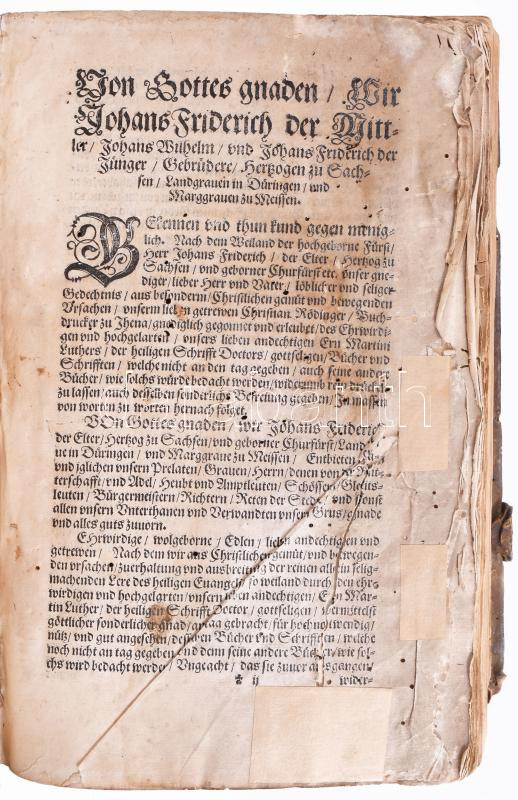 Von Gottes gnaden / Wir
Johans Friderich der Mitt-
ler / Johans Wilhelm / vnd Johans Friderich der
Jünger / Gebrüdere / Hertzogen zu Sach-
sen / Landgrauen in Düringen / vnd
Marggrauen zu Meissen.
BEkennen vnd thun kund gegen menig-
lich. Nach dem Weiland der hochgeborne Fürst /
Herr Johans Friderich / der Elter / Hertzog zu
Sachsen / vnd geborner Churfürst etc. vnser gne-
diger / lieber Herr vnd Vater / löblicher vnd seliger
Gedechtnis / aus besonderm / Christlichen gemüt vnd bewegenden
Vrsachen / vnserm lieben getrewen Christian Rödinger / Buch-
drucker zu Jhena / gnediglich gegonnet vnd erleubet / des Ehrwirdi-
gen vnd hochgelarten / vnsers lieben andechtigen Ern Martini
Luthers / der heiligen Schrifft Doctors / gottseligen / Bücher vnd
Schrifften / welche nicht an den tag gegeben / auch seine andere
Bücher / wie solchs würde bedacht werden / widerumb zu drücken
zu lassen / auch desselben sonderlich Befreiung gegeben / Jn massen
von worten zu worten hernach folget.
VOn Gottes gnaden / wir Johans Friderich
der Elter / Hertzog zu Sachsen / vnd geborner Churfürst / Land
ue in Düringen / vnd Marggraue zu Meissen / Entbieten
vnd jglichen vnsern Prelaten / Grauen / Herrn / denen von der Rit-
terschafft / vnd Adel / Heubt vnd Amptleuten / Schössern / Gleits-
leuten / Bürgermeistern / Richtern / Reten der Stedte / vnd sonst
allen vnsern Vnterthanen vnd Verwandten vnsern Grus / gnade
vnd alles guts zuuorn.
EHrwirdige / wolgeborne / Edlen / lieben andechtigen vnd
getrewen / Nach dem wir aus Christlichen gemüt / vnd bewegen-
den vrsachen / zuerhaltung vnd ausbreitung der reinen allein selig-
machenden Lere des heiligen Euangelij / so weiland durch den ehr-
wirdigen vnd hochgelarten / vnsern lieben andechtigen / Ern Mar-
tin Luther / der heiligen Schrifft Doctor / gottseligen / vermittelst
göttlicher sonderlicher gnad / an tag gebracht / für hochnotwendig /
nütz / vnd gut angesehen / desselben Bücher vnd Schrifften / welche
noch nicht an tag gegeben / vnd denn seine andere Bücher / wie sol-
chs wird bedacht werden / Vngeacht / das sie zuuor ausgangen /
✠ ij wider-